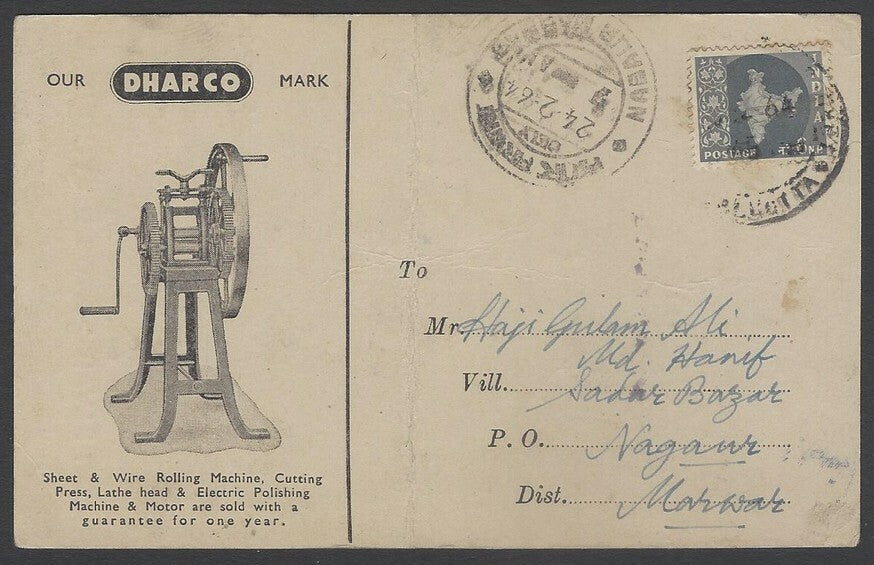 OUR DHARCO MARK
Sheet & Wire Rolling Machine, Cutting
Press, Lathe head & Electric Polishing
Machine & Motor are sold with a
guarantee for one year.
24.2.64
DELY
INDIA
POSTAGE
NP
To
Mr. Haji Gulam Ali
Md. Hanif
Vill. Sadar Bazar
P.O. Nagaur
Dist. Marwar